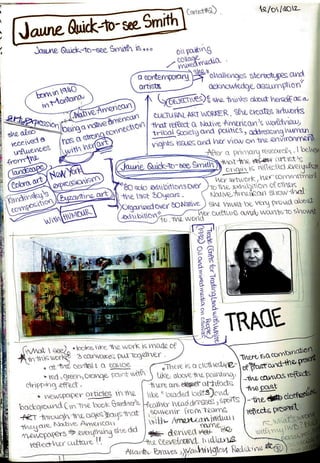 (artist#2)
12/01/2012
Jaune Quick-to-see Smith
Jaune Quick-to-see Smith is...
oil painting
collage
mixed media
she
a contemporary
artist
challenges stereotypes and
acknowledge assumption
born in 1940
in Montana
OBJECTIVES
she thinks about herself as a
CULTURAL ART WORKER, she creates artworks
that reflect a Native American's worldview,
tribal society and politics, addressing human
rights issues and her view on the environment
Native American
being a native American
has a strong connection
with her art
she also
received
influences
from the
landscape
Cobra art
Kandinsky's
composition
New York
expressionism
Byzantine art
with HUMOUR
Jaune Quick-to-see Smith
80 solo exhibitions over
the last 30 years.
Organised over 30 Native
exhibitions to the world
After a primary research, I believe
that the artist's
origin is reflected everywhere
Her artwork, her commitment
to the exhibition of other
Native American show that
she must be very proud about
her culture and wants to show
Trade (Gifts for Trading Land with White
People)
1992 Oil and mixed media on canvas
TRADE
What I see?
• looks like the work is made of
in this work 3 canvases put together
• at the center a canoe
• red, green, orange paint with
dripping effect.
• newspaper articles in the
background (in the book Gardner's
ART through the ages) says that
they are Native American
newspapers → everything she did
reflect her culture!!
• There is a clothesline
like above the painting.
there are artifacts
like "beaded belts" and
feather headdresses, sports
souvenir from teams
with American indian
derived name
the Cleveland Indians
Atlanta Braves, Washington Redskins
There is a combination
of past and the present
- the canvas reflects
the past
- the clothesline
reflects present